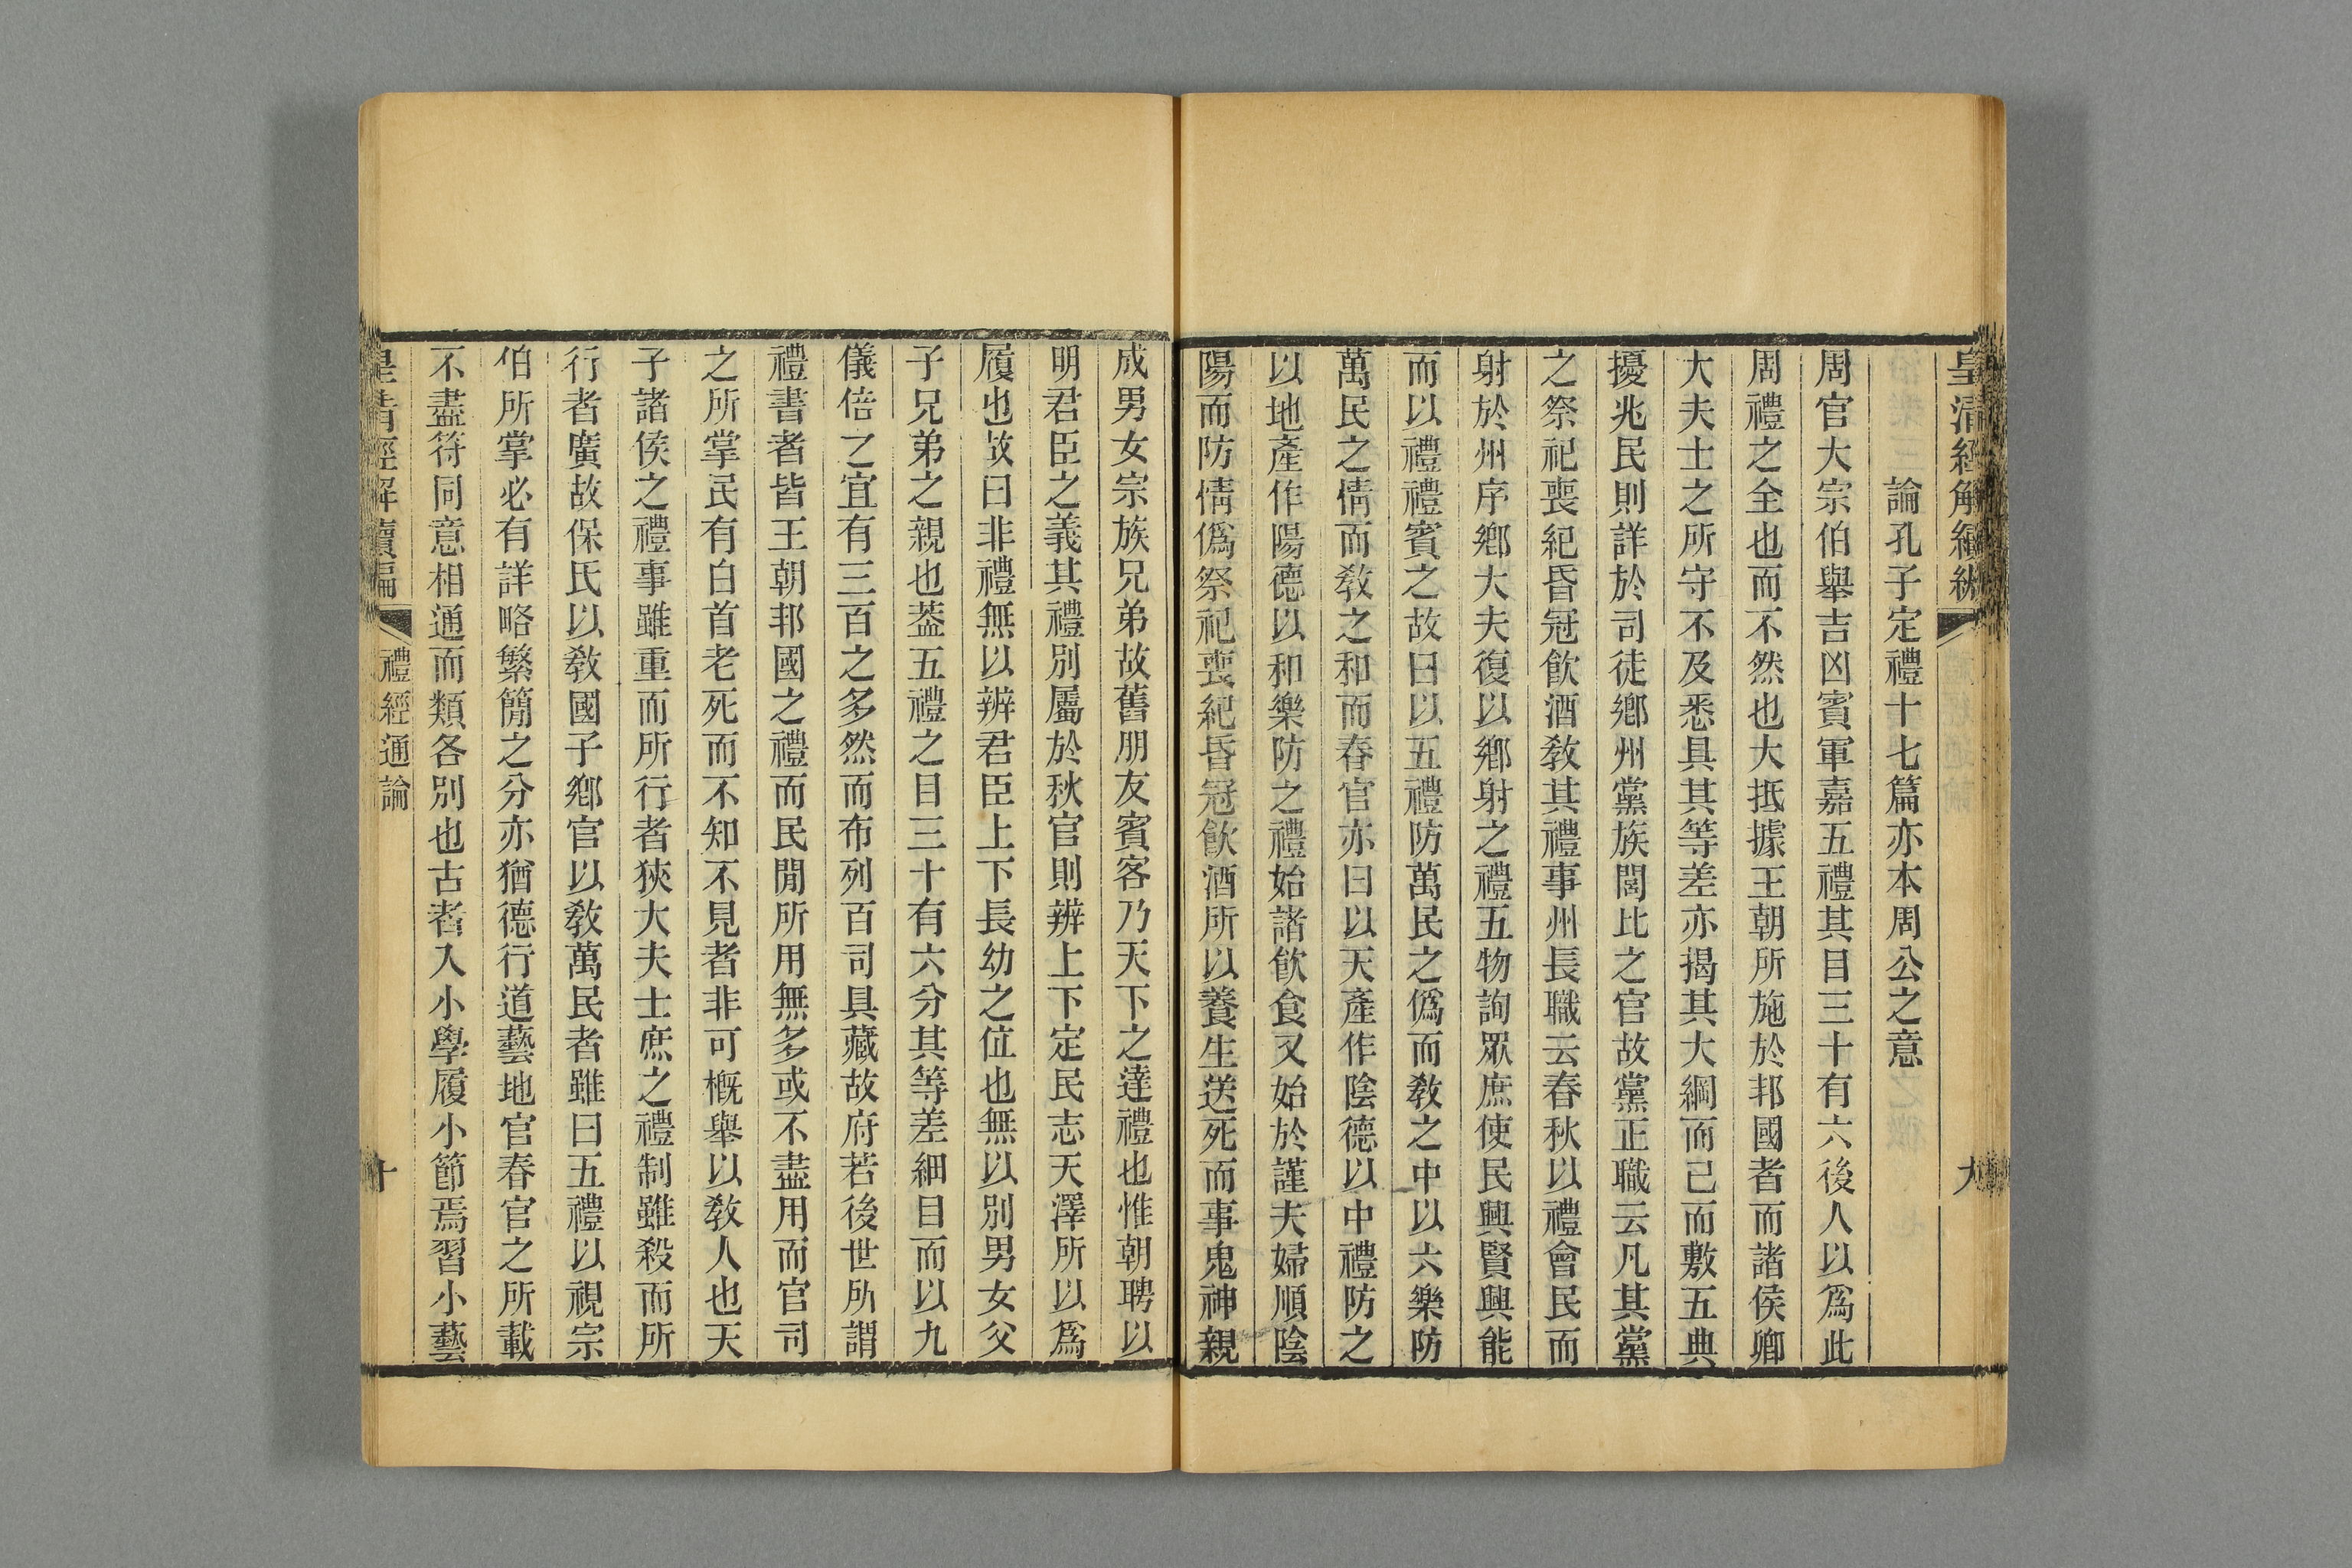 皇清經解續編
九
論孔子定禮十七篇亦本周公之意
周官大宗伯舉吉凶賓軍嘉五禮其目三十有六後人以爲此
周禮之全也而不然也大抵據王朝所施於邦國者而諸侯卿
大夫士之所守不及悉具其等差亦揭其大綱而已而敷五典
擾兆民則詳於司徒鄕州黨族閭比之官故黨正職云凡其黨
之祭祀喪紀昏冠飮酒敎其禮事州長職云春秋以禮會民而
射於州序鄕大夫復以鄕射之禮五物詢眾庶使民興賢興能
而以禮禮賓之故曰以五禮防萬民之僞而敎之中以六樂防
萬民之情而敎之和而春官亦曰以天產作陰德以中禮防之
以地產作陽德以和樂防之禮始諸飮食又始於謹夫婦順陰
陽而防情僞祭祀喪紀昏冠飮酒所以養生送死而事鬼神親
成男女宗族兄弟故舊朋友賓客乃天下之達禮也惟朝聘以
明君臣之義其禮別屬於秋官則辨上下定民志天澤所以爲
履也故曰非禮無以辨君臣上下長幼之位也無以別男女父
子兄弟之親也葢五禮之目三十有六分其等差細目而以九
儀倍之宜有三百之多然而布列百司具藏故府若後世所謂
禮書者皆王朝邦國之禮而民閒所用無多或不盡用而官司
之所掌民有白首老死而不知不見者非可槪舉以敎人也天
子諸侯之禮事雖重而所行者狹大夫士庶之禮制雖殺而所
行者廣故保氏以敎國子鄕官以敎萬民者雖曰五禮以視宗
伯所掌必有詳略繁簡之分亦猶德行道藝地官春官之所載
不盡符同意相通而類各別也古者入小學履小節焉習小藝
皇淸經解續編
禮經通論
十